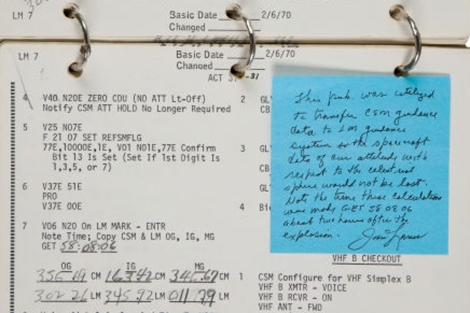 Basic Date 2/6/70
Changed
LM 7
Basic Date 2/6/70
Changed
ACT 31
4 V40 N20E ZERO CDU (NO ATT Lt-Off)
Notify CSM ATT HOLD No Longer Required
5 V25 N07E
F 21 07 SET REFSMFLG
77E,10000E,1E, V01 N01E,77E Confirm
Bit 13 Is Set (Set If 1st Digit Is
1,3,5, or 7)
6 V37E 51E
PRO
V37E 00E
7 V06 N20 On LM MARK - ENTR
Note Time; Copy CSM & LM OG, IG, MG
GET 58:08:06
OG IG MG
CM CM 346.67 CM
302.26 LM 345.92 LM 011.79 LM
2 GL
3 GL
4 Bi
This page was utilized
to transfer CSM guidance
data to LM guidance
system so the spacecraft
data of our attitude with
respect to the celestial
sphere would not be lost.
Note the time these calculations
was made GET 58 08 06
about two hours after the
explosion.
VHF B CHECKOUT
1 CSM Configure for VHF Simplex B
VHF B XMTR - VOICE
VHF B RCVR - ON
VHF ANT - FWD